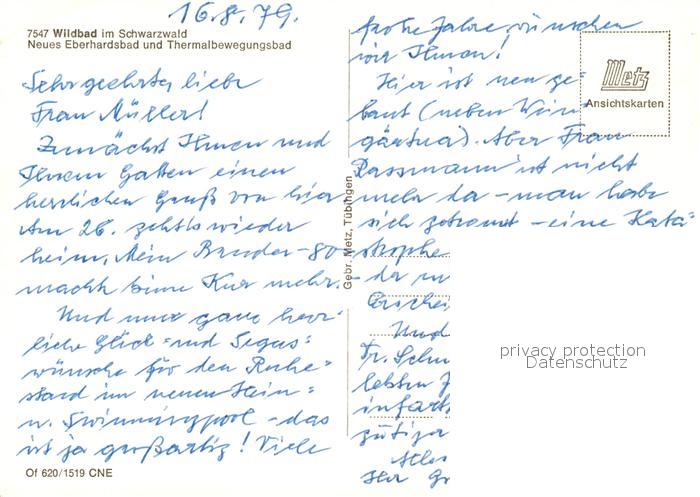 16.8.79.
7547 Wildbad im Schwarzwald
Neues Eberhardsbad und Thermalbewegungsbad
Sehr geehrte, liebe
Frau Müller!
Zunächst Ihnen und
Ihrem Gatten einen
herrlichen Gruß von hier
Am 26. geht's wieder
heim. Mein Bruder - 80 -
macht keine Kur mehr.
Und nun ganz herz-
liche Glück- und Segens-
wünsche für den Ruhe-
stand im neuen Heim -
u. Swimmingpool - das
ist ja großartig! Viele
Of 620/1519 CNE
Gebr. Metz, Tübingen
frohe Jahre wünschen
wir Ihnen!
Hier ist neu ge-
baut (neben Wein-
gärtner). Aber Frau
Rassmann ist nicht
mehr da - man habe
sich getrennt - eine Kata-
strophe
- der
Und
Dr.
letzten
infarkt
gütige
Alles
Metz
Ansichtskarten
privacy protection
Datenschutz